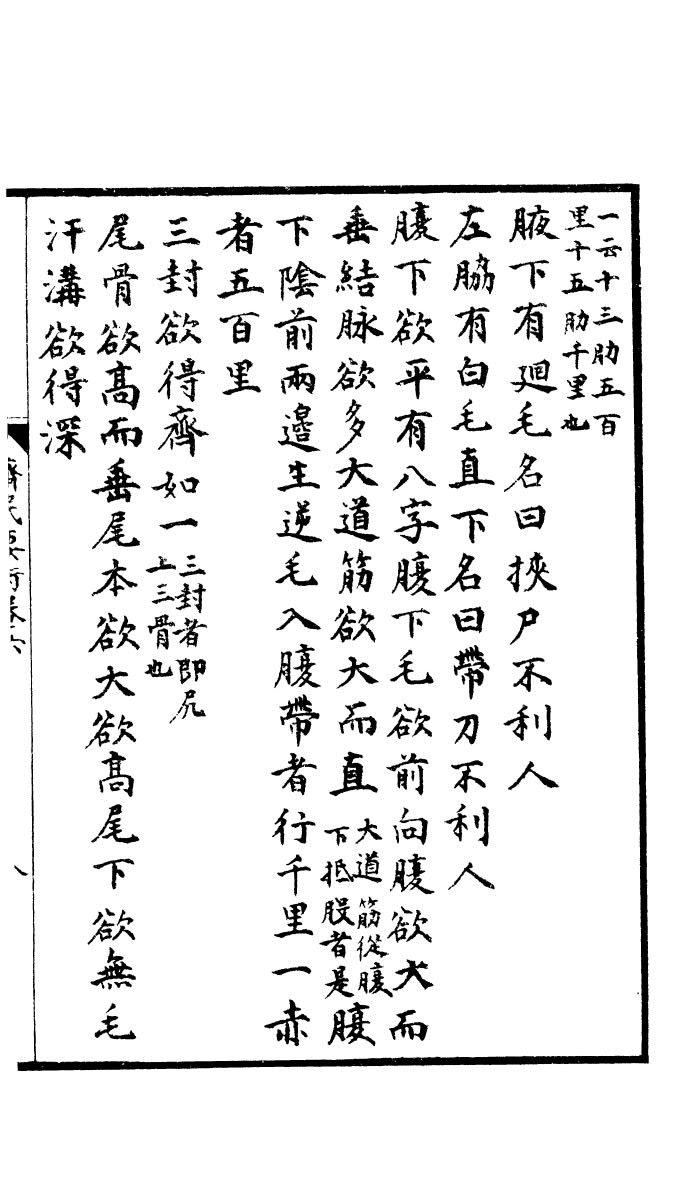 一云十三肋五百
里十五肋千里也
腋下有廻毛名曰挾尸不利人
左脇有白毛直下名曰帶刀不利人
腹下欲平有八字腹下毛欲前向腹欲大而
垂結脉欲多大道筋欲大而直大道筋從腹下抵股者是腹
下陰前兩邉生逆毛入腹帶者行千里一赤
者五百里
三封欲得齊如一三封者即尻上三骨也
尾骨欲髙而垂尾本欲大欲髙尾下欲無毛
汗溝欲得深
齊民要術卷六
八